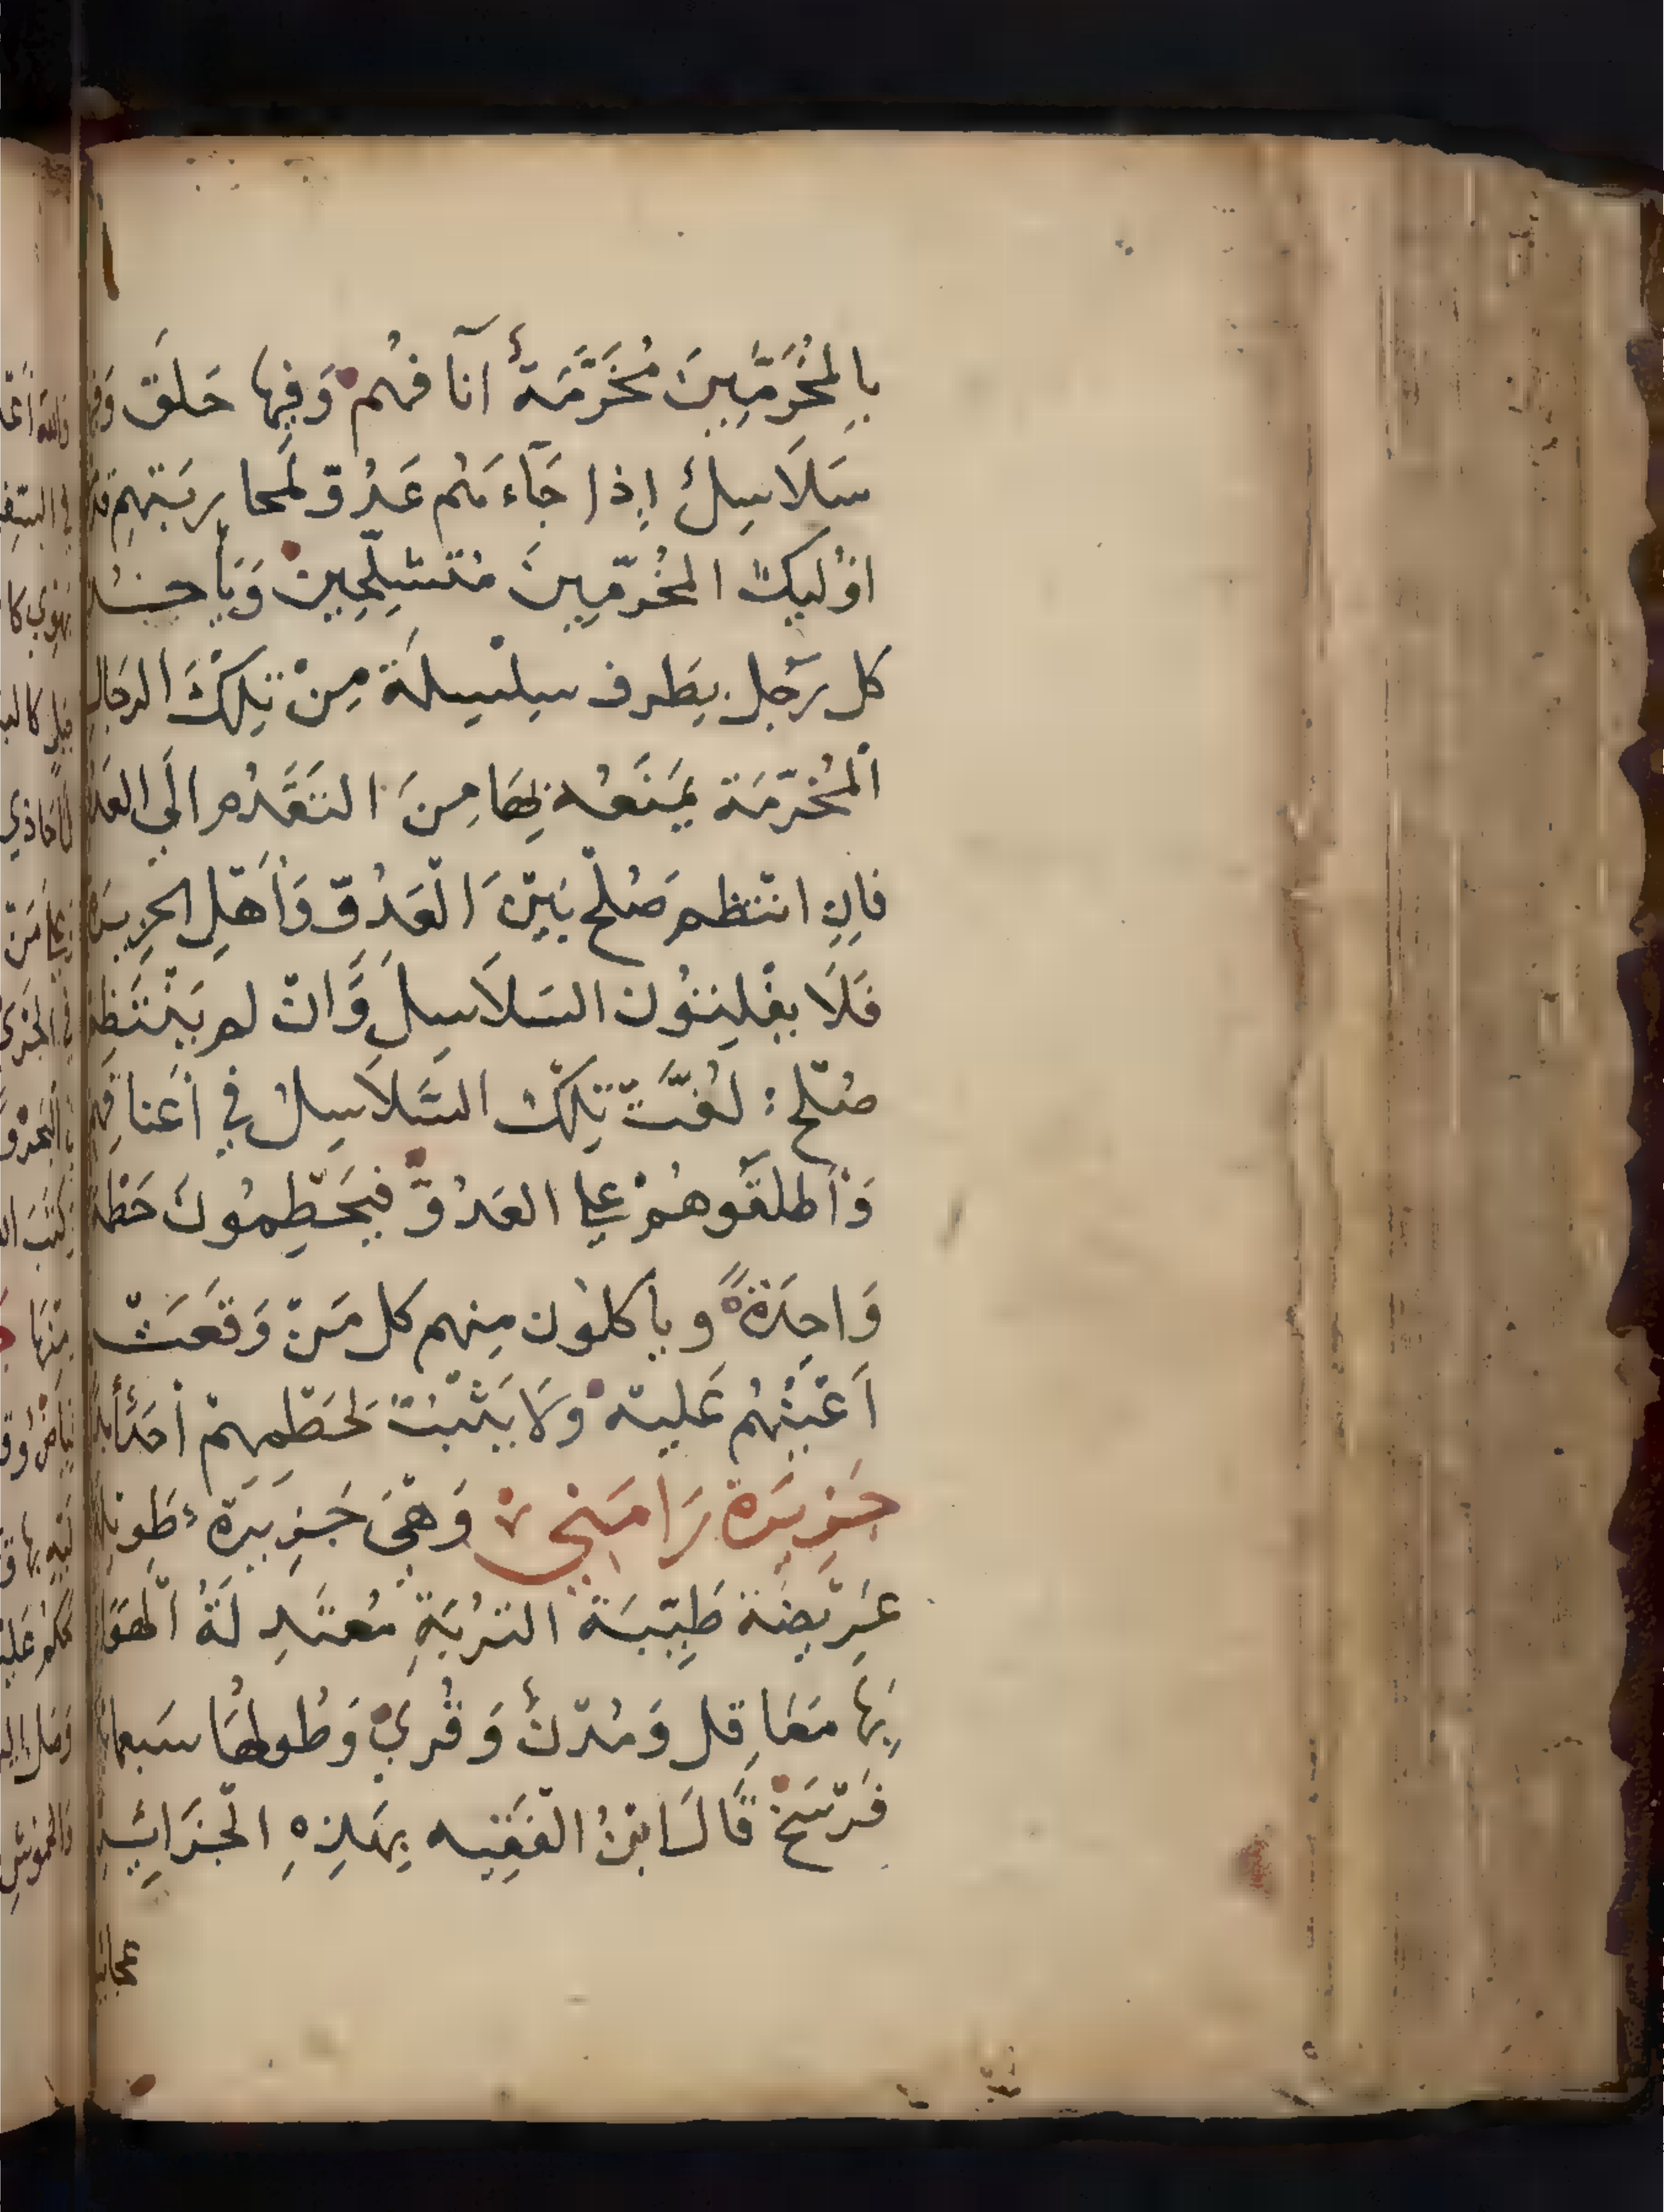 بِالمُخَرَّمِينَ مُخَرَّمَةٌ آنافهُم وَفِيها حَلَق وَفي
سَلَاسِلُ إِذا جَآءَهُم عَدُوّ لمحاربَتهِم قدّ
اوُليك المخُرّمِينَ مُتَسَلِّحِينْ وَيَأخذ
كل رَجل بِطَرف سِلْسِلَة مِنْ تِلكَ الرجَال
المُخُرّمَة يَمنَعُه بِهَا مِنَ التَقَدُم الَي العَدُ
فاِن انتظم صُلْح بَيْنَ العَدُوّ وَأهْلِ الجزيرة
فَلَا يفْلِتُون السَلاَسِلَ وَانْ لم يَنْتَظِم
صُلح : لفُّتْ تِلكَ السَّلاَسِل في أعناقِهم
وَأطلَقوهُمْ علي العَدُوّ فيَحَطِمُونَ حَطمة
وَاحِدَةً ويأكلوُن مِنهم كل مَنْ وَقعَتْ
اَعْيُنُهُم عَليهْ وَلَا يَثْبُت لحَطْمِهِمْ أحَدٌ
جَزِيرَة رَامَني وَهْيَ جَزِيرَة طَويله
عَرِيْضَة طَيِّبَة التُرْبَةِ مُعتَدِلَةُ الهَوَا
بِهَا مَعَاقِل وَمُدْنٌ وَقُرَيً وَطُولهَا سَبعمائة
فَرْسَخْ قَالَ ابْنُ الفَقيه بِهَذِهِ الْجَزَائِر
عجائب